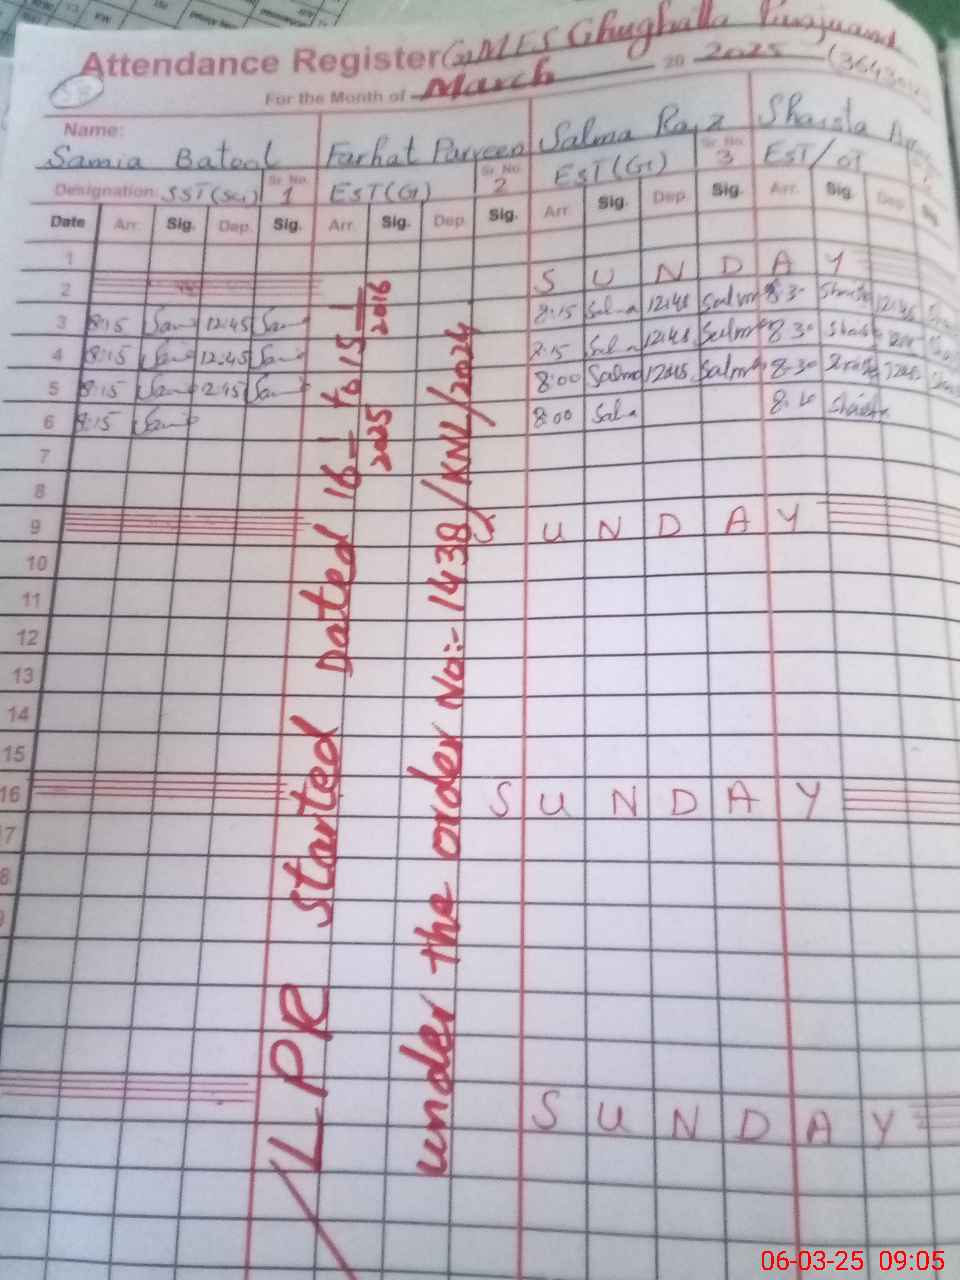 Attendance Register GMES Ghughalla
For the Month of March 20 2025
Name:
Samia Batool Farhat Parveen Salma Shaista
Designation: SST(Sci) Sr. No. 1 EST(G) Sr. No. 2 EST(G) Sr. No. 3 EST/OT
Date Arr. Sig. Dep. Sig. Arr. Sig. Dep. Sig. Arr. Sig. Dep. Sig. Arr. Sig. Dep. Sig.
1
2 S U N D A Y
3 8:15 Sam 12:45 Sam 8:15 Salma 12:45 Salma 8:30 Shaista 12:45
4 8:15 Sam 12:45 Sam 8:15 Salma 12:45 Salma 8:30 Shaista
5 8:15 Sam 12:45 Sam 8:00 Salma 12:45 Salma 8:30 Shaista 12:45
6 8:15 Sam 8:00 Salma Shaista
7
8
9 S U N D A Y
10
11
12
13
14
15
16 S U N D A Y
7
8
9
S U N D A Y
LPR started Dated 16-1-2025 to 15-1-2016
under the order No:- 1438/KNL/2024
06-03-25 09:05